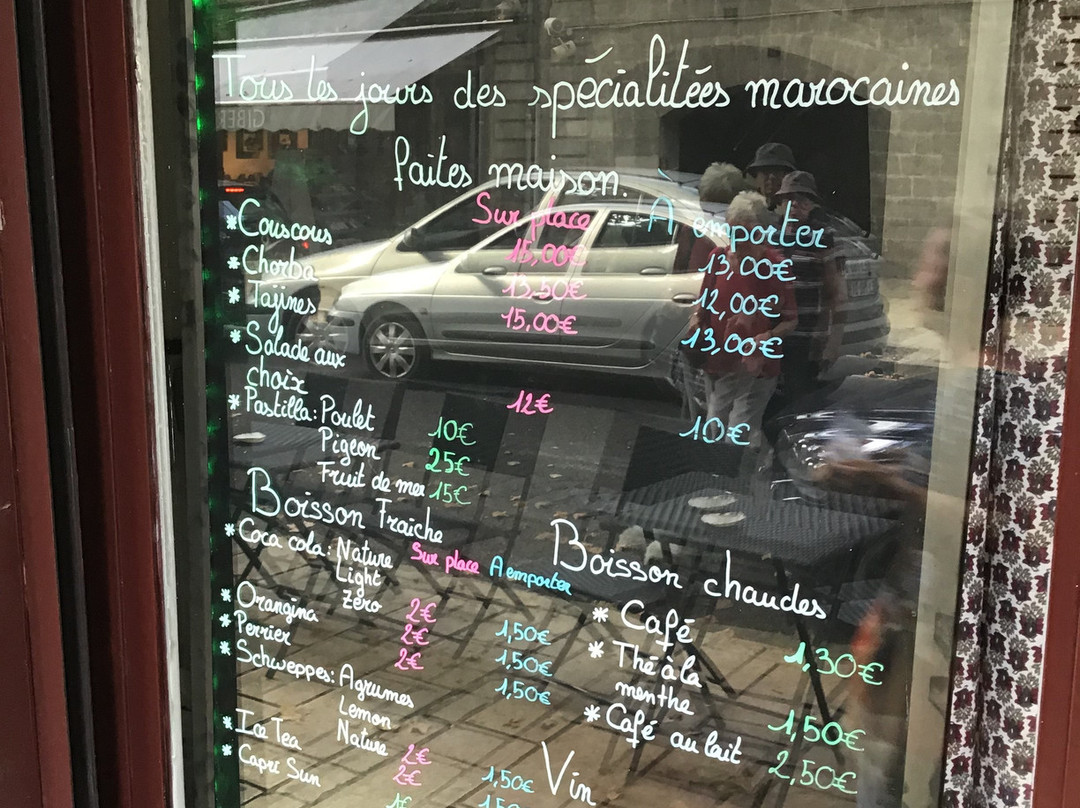 Tous les jours des spécialitées marocaines
faites maison.
Sur place A emporter
*Couscous 15,00€ 13,00€
*Chorba 13,50€ 12,00€
*Tajines 15,00€ 13,00€
*Salade aux
choix 12€ 10€
*Pastilla: Poulet 10€
Pigeon 25€
Fruit de mer 15€
Boisson Fraîche
Sur place A emporter
*Coca cola: Nature
Light
Zéro 2€ 1,50€
*Orangina 2€ 1,50€
*Perrier 2€ 1,50€
*Schweppes: Agrumes
Lemon
Nature 2€ 1,50€
*Ice Tea 2€
*Capri Sun 1€
Boisson chaudes
*Café 1,30€
*Thé à la
menthe 1,50€
*Café au lait 2,50€
Vin